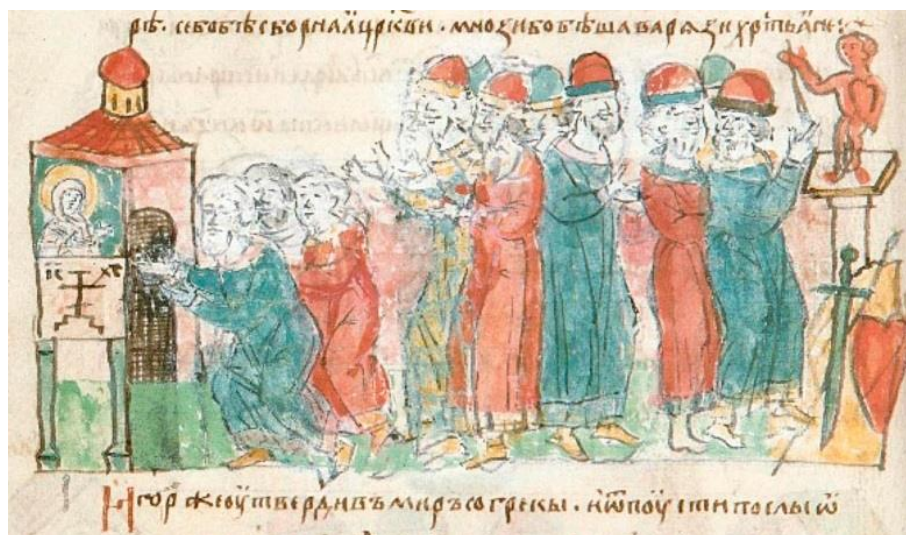 рѣ. се бо бѣ сборнаꙗ црк҃ви. мнози бо бѣша варѧзи хр҃тьꙗне:
IC XC
Игорь же оутвердивъ миръ со греки. и ѿпоусти послы ѿ